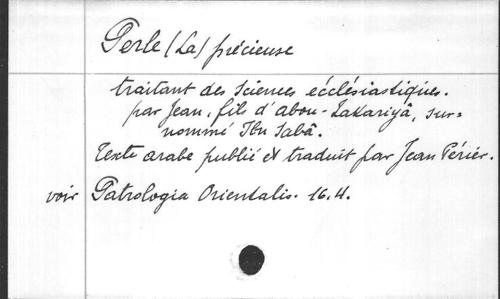 Perle (La) précieuse
traitant des sciences ecclésiastiques.
par Jean, fils d'Abou-Zakariyâ, sur=
nommé Ibn Sabâ.
Texte arabe publié et traduit par Jean Périer.
voir Patrologia Orientalis. 16.4.